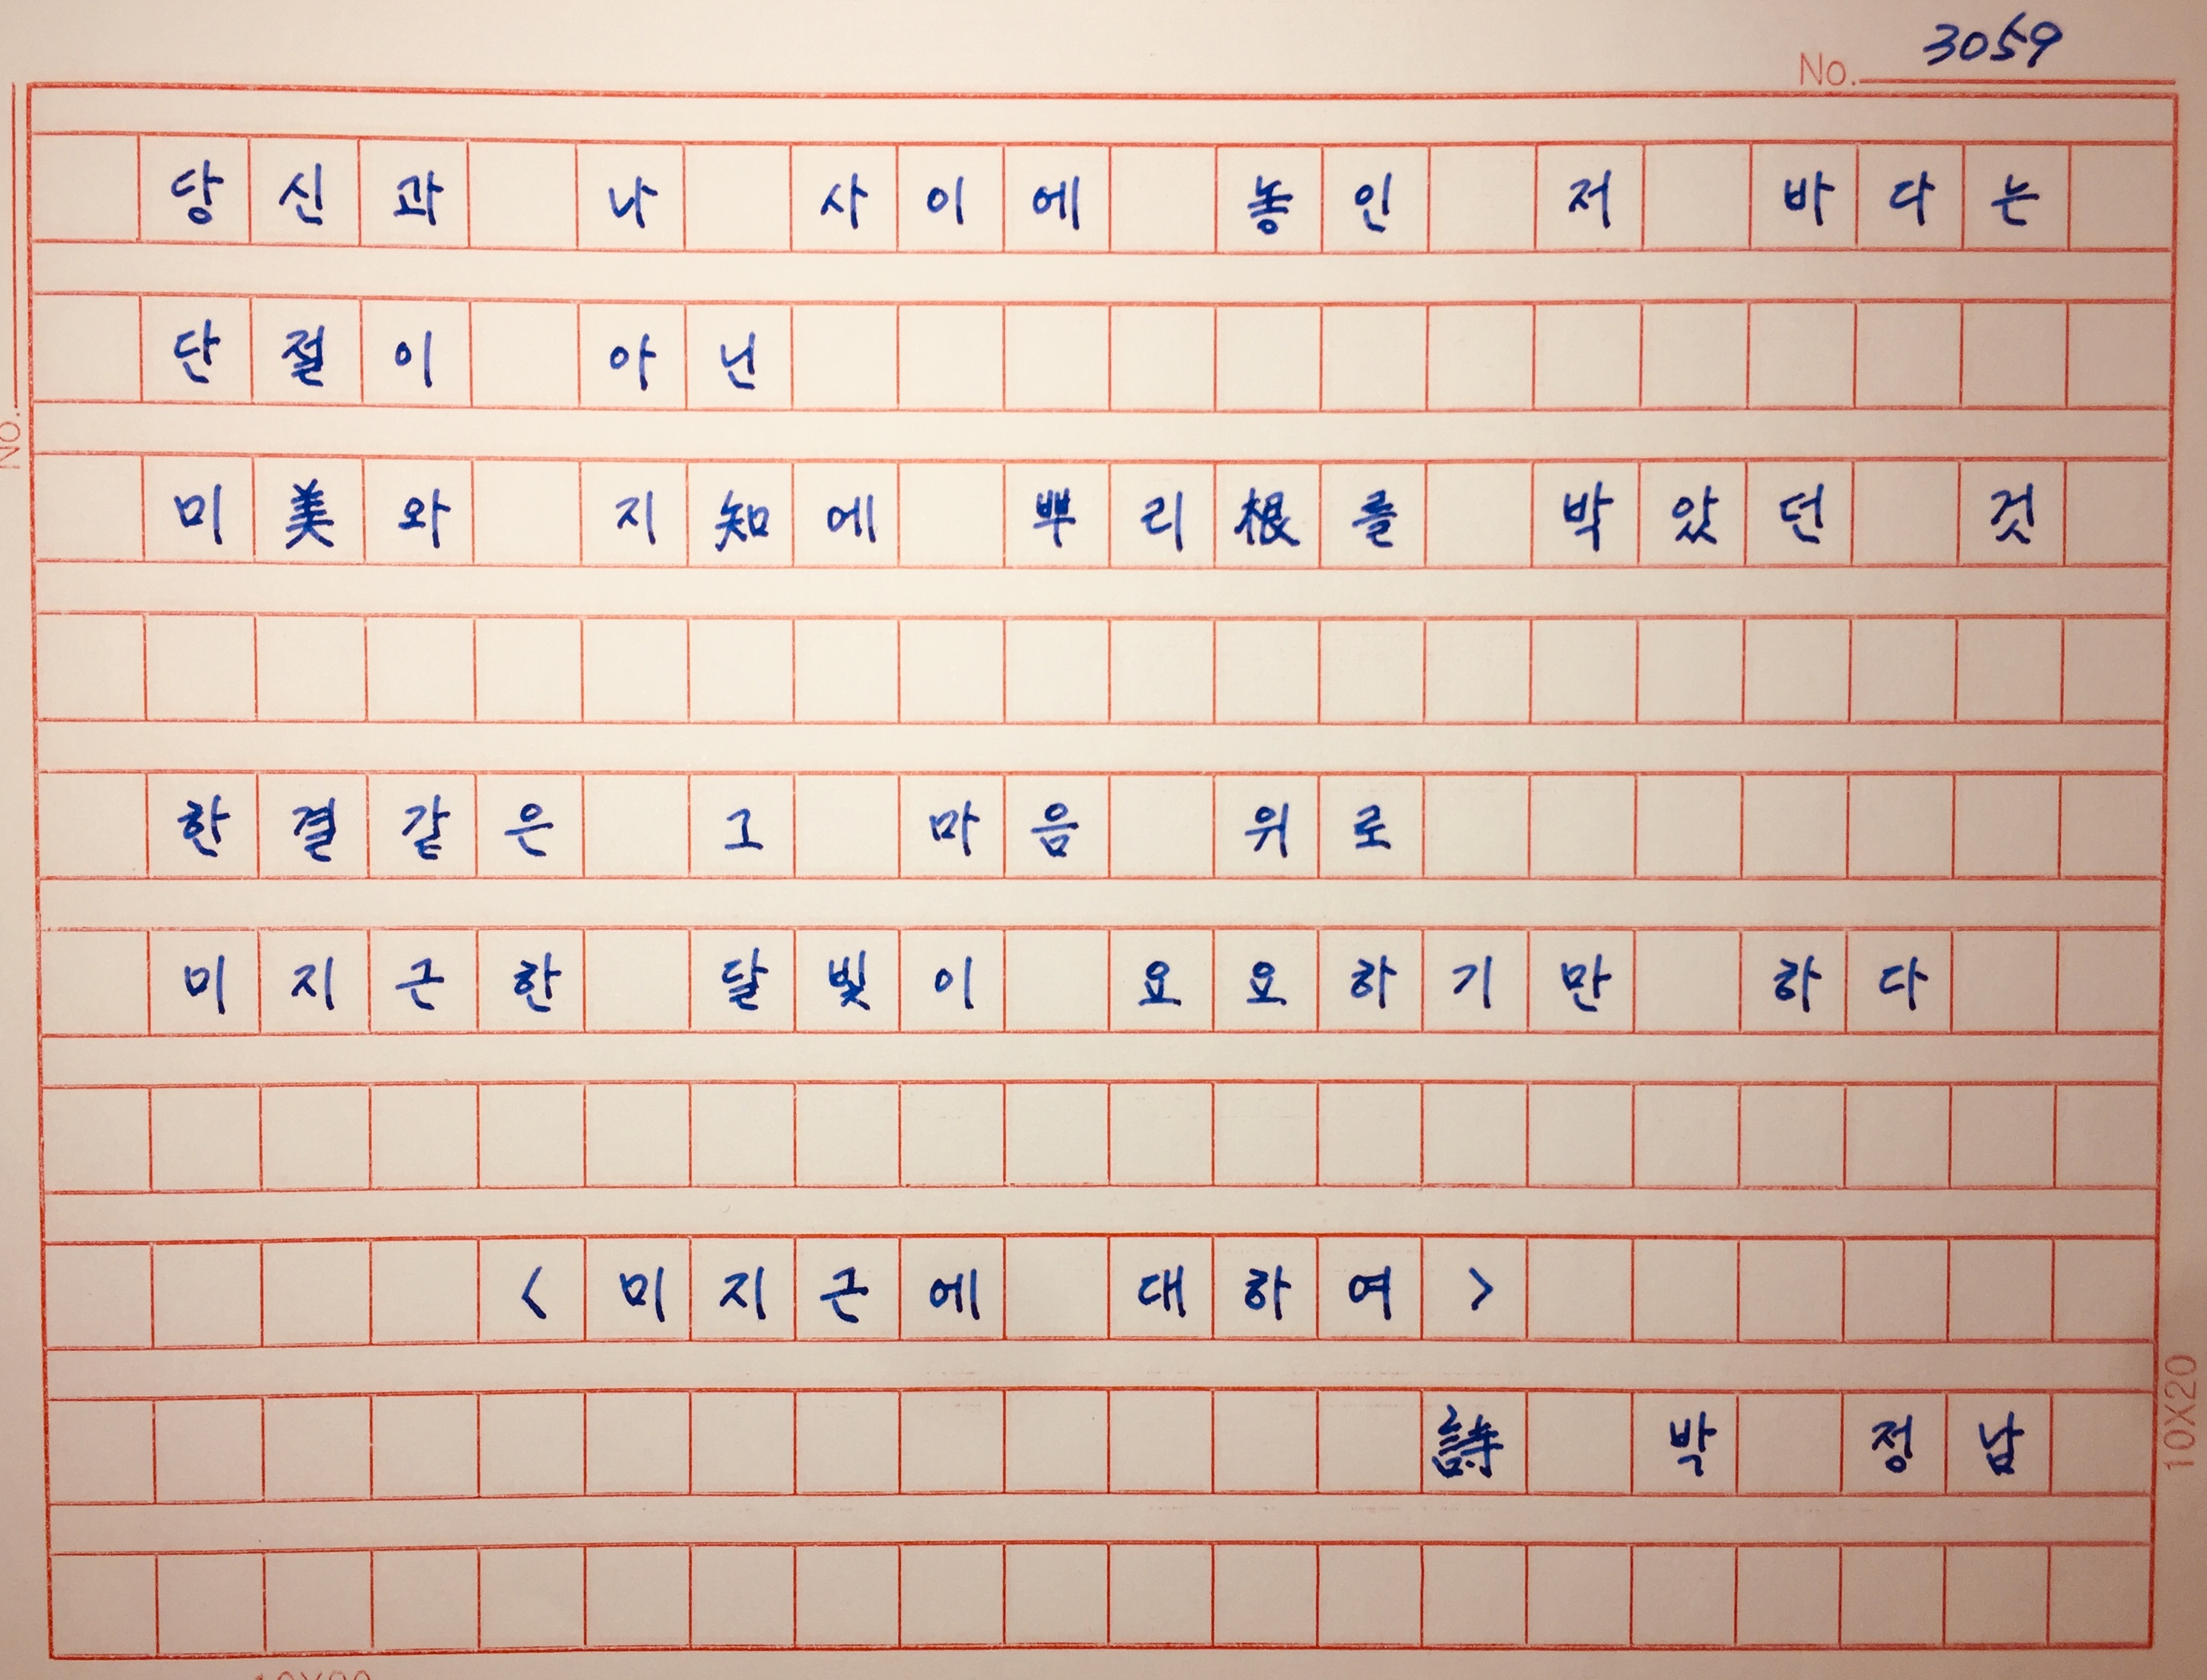 No. 3059
당신과 나 사이에 놓인 저 바다는
단절이 아닌
미美와 지知에 뿌리根를 박았던 것
한결같은 그 마음 위로
미지근한 달빛이 요요하기만 하다
<미지근에 대하여>
詩 박 정남
No.
10X20
10X20